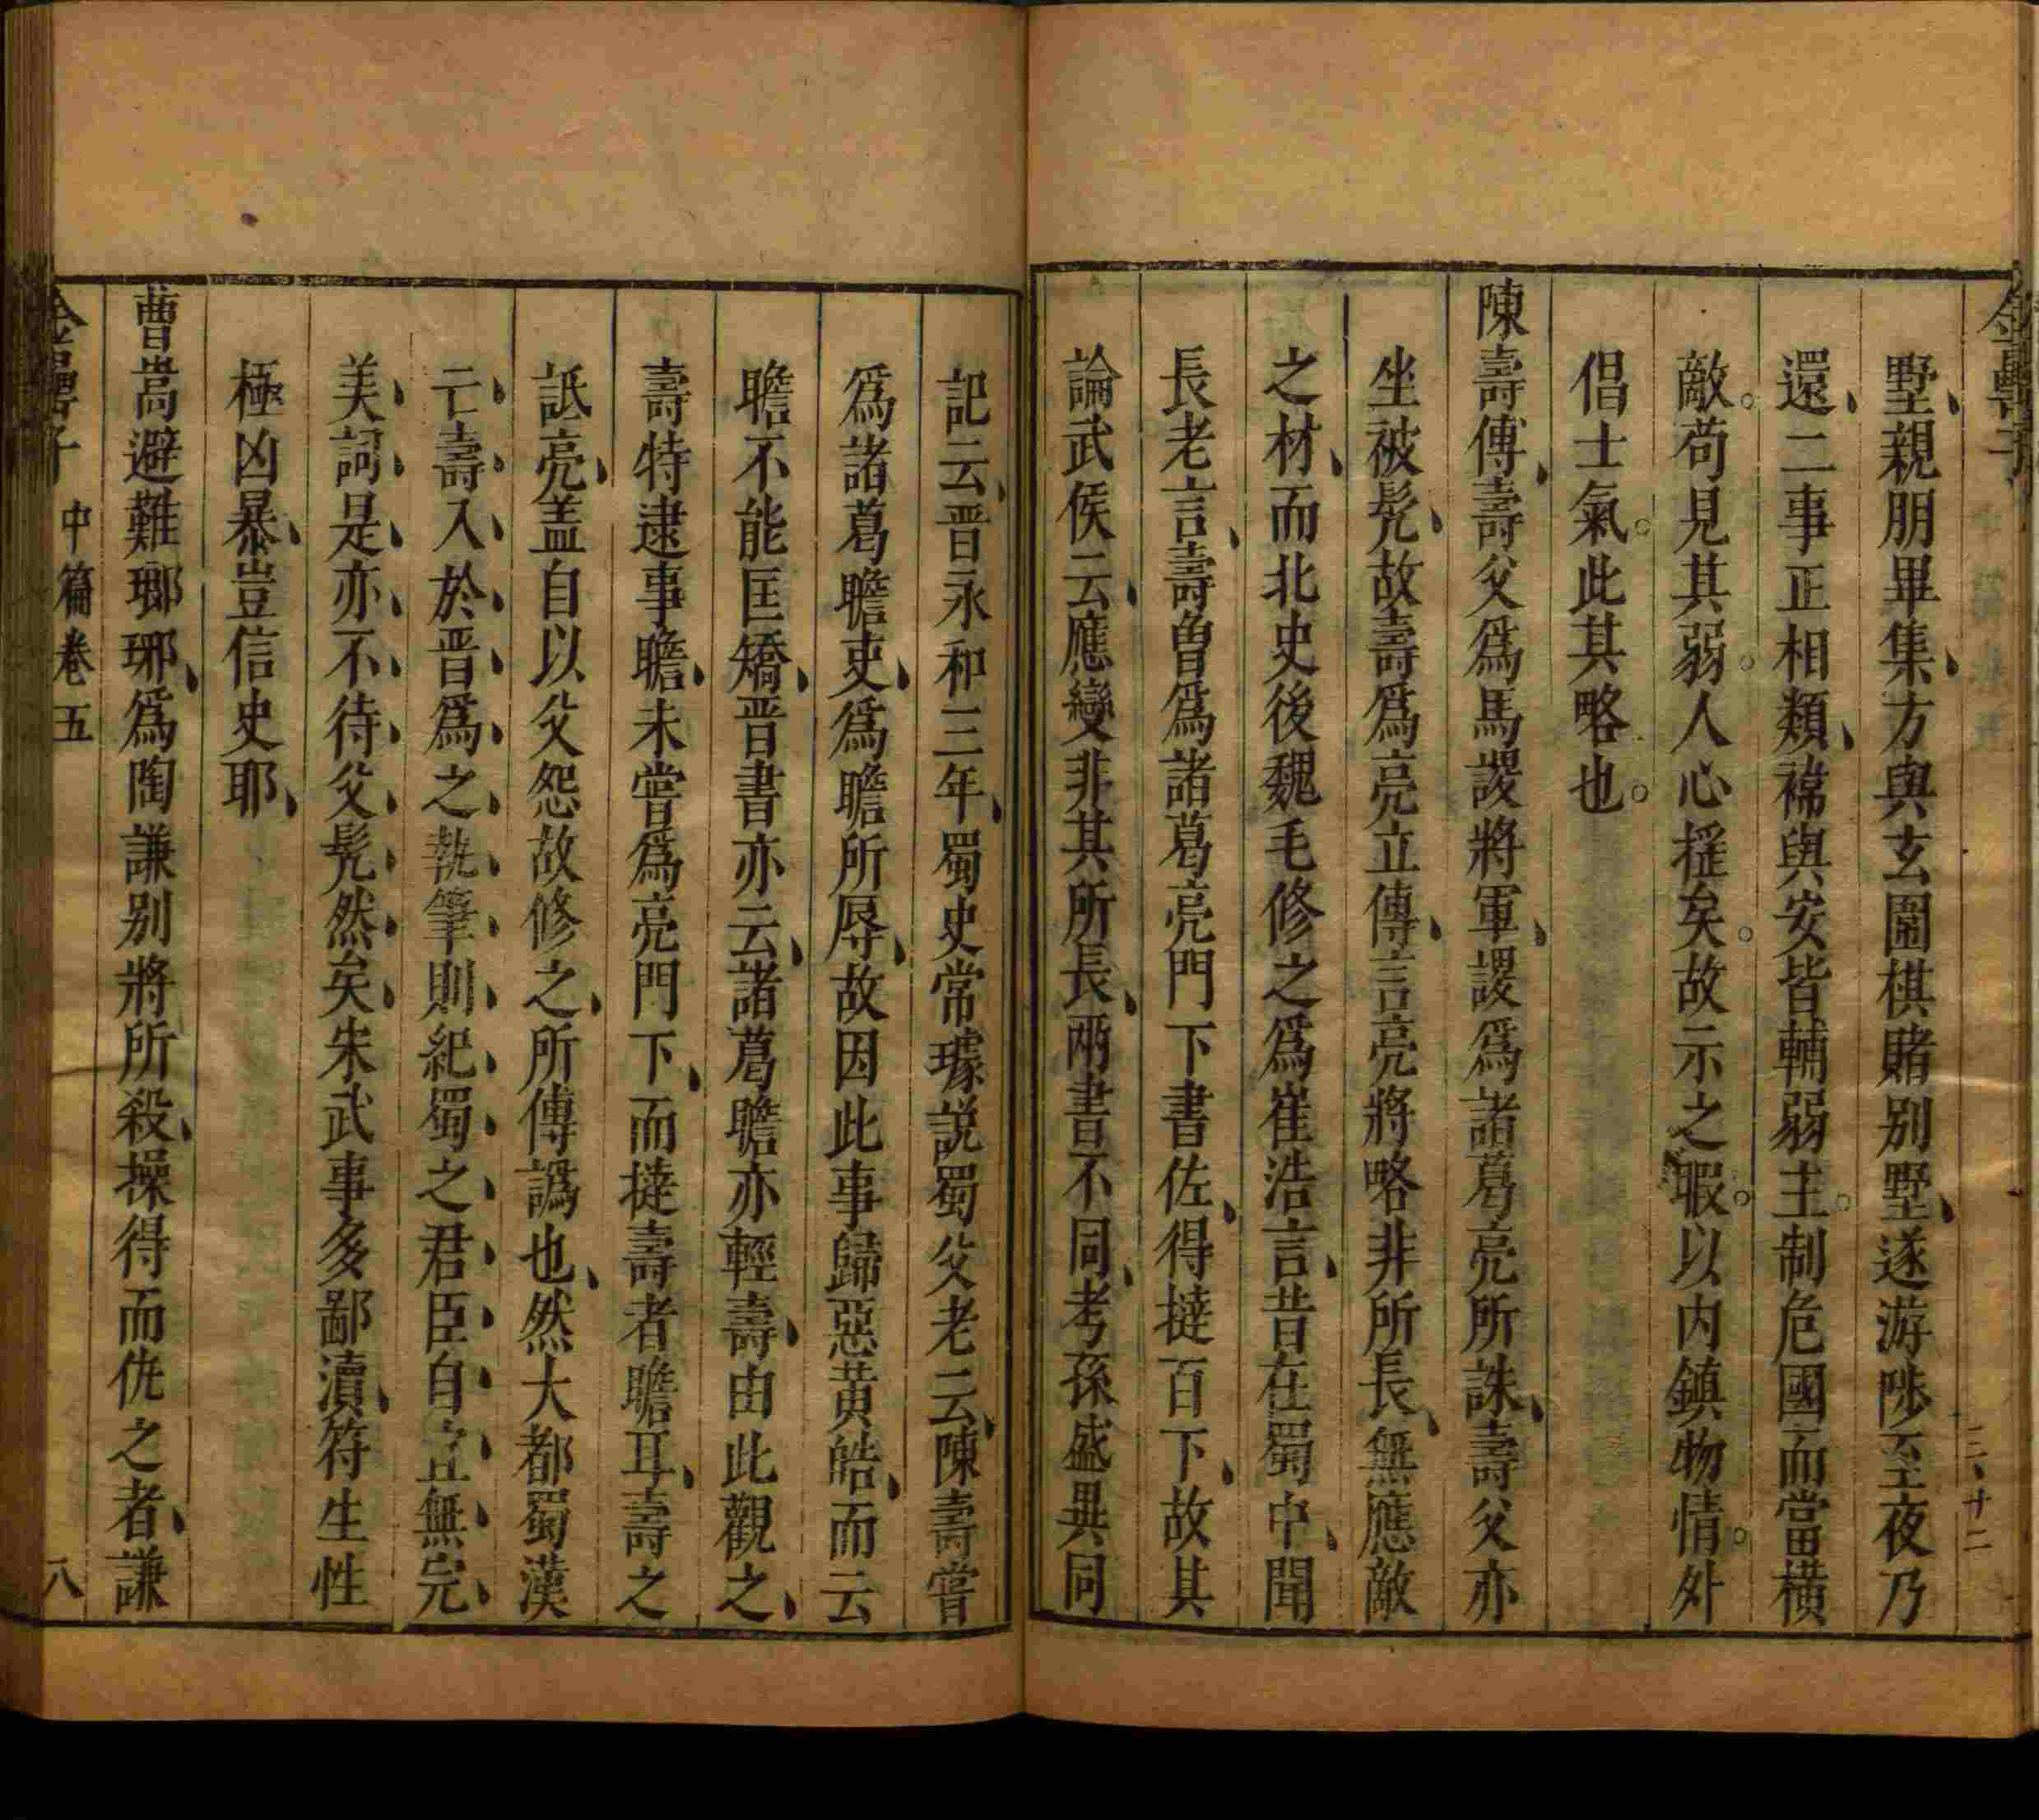 金罍子
三、十二
墅、親朋畢集、方與玄圍棋賭别墅、遂游陟至夜乃
還、二事正相類、禕與安皆輔弱主。制危國而當橫
敵。苟見其弱。人心摇矣。故示之暇。以内鎮物情。外
倡士氣。此其略也。
陳壽傳、壽父爲馬謖將軍、謖爲諸葛亮所誅、壽父亦
坐被髠、故壽爲亮立傳、言亮將略非所長、無應敵
之材、而北史後魏毛修之爲崔浩言、昔在蜀中、聞
長老言、壽曾爲諸葛亮門下書佐、得撻百下、故其
論武侯云、應變非其所長、兩書不同、考孫盛異同
記云、晋永和三年、蜀史常璩説蜀父老云、陳壽嘗
爲諸葛瞻吏、爲瞻所辱、故因此事歸惡黄皓、而云
瞻不能匡矯、晋書亦云、諸葛瞻亦輕壽、由此觀之、
壽特逮事瞻、未嘗爲亮門下、而撻壽者瞻耳、壽之
詆亮、盖自以父怨故修之、所傳譌也、然大都蜀漢
亡、壽、入、於、晋、爲、之、執、筆、則、紀、蜀、之、君、臣、自、宜、無、完、
美、詞、是、亦、不、待、父、髠、然、矣、朱武事多鄙瀆、符生性
極凶暴、豈信史耶、
曹嵩避難瑯琊、爲陶謙别將所殺、操得而仇之者、謙
金罍子 中篇卷五 八